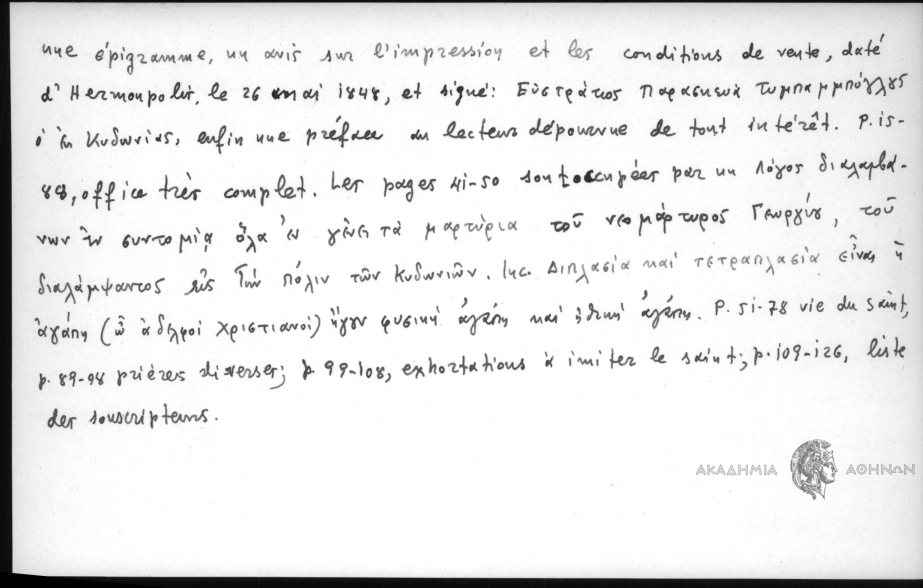 une épigramme, un avis sur l'impression et les conditions de vente, daté
d'Hermoupolis, le 26 mai 1848, et signé: Εὐστράτιος Παρασκευᾶ
ὁ ἐκ Κυδωνίας, enfin une préface au lecteur dépourvue de tout intérêt. P. 15-
88, office très complet. Les pages 41-50 sont occupées par un Λόγος διαλαμβά-
νων ἐν συντομίᾳ ὅλα ἐν γένει τὰ μαρτύρια τοῦ νεομάρτυρος Γεωργίου, τοῦ
διαλάμψαντος εἰς τὴν πόλιν τῶν Κυδωνιῶν. Inc. Διπλασία καὶ τετραπλασία εἶναι ἡ
ἀγάπη (ὦ ἀδελφοὶ χριστιανοί) ἤγουν φυσικὴ ἀγάπη καὶ ἠθικὴ ἀγάπη. P. 51-78 vie du saint,
p. 89-98 prières diverses; p. 99-108, exhortations à imiter le saint; p. 109-126, liste
des souscripteurs.
ΑΚΑΔΗΜΙΑ ΑΘΗΝΩΝ